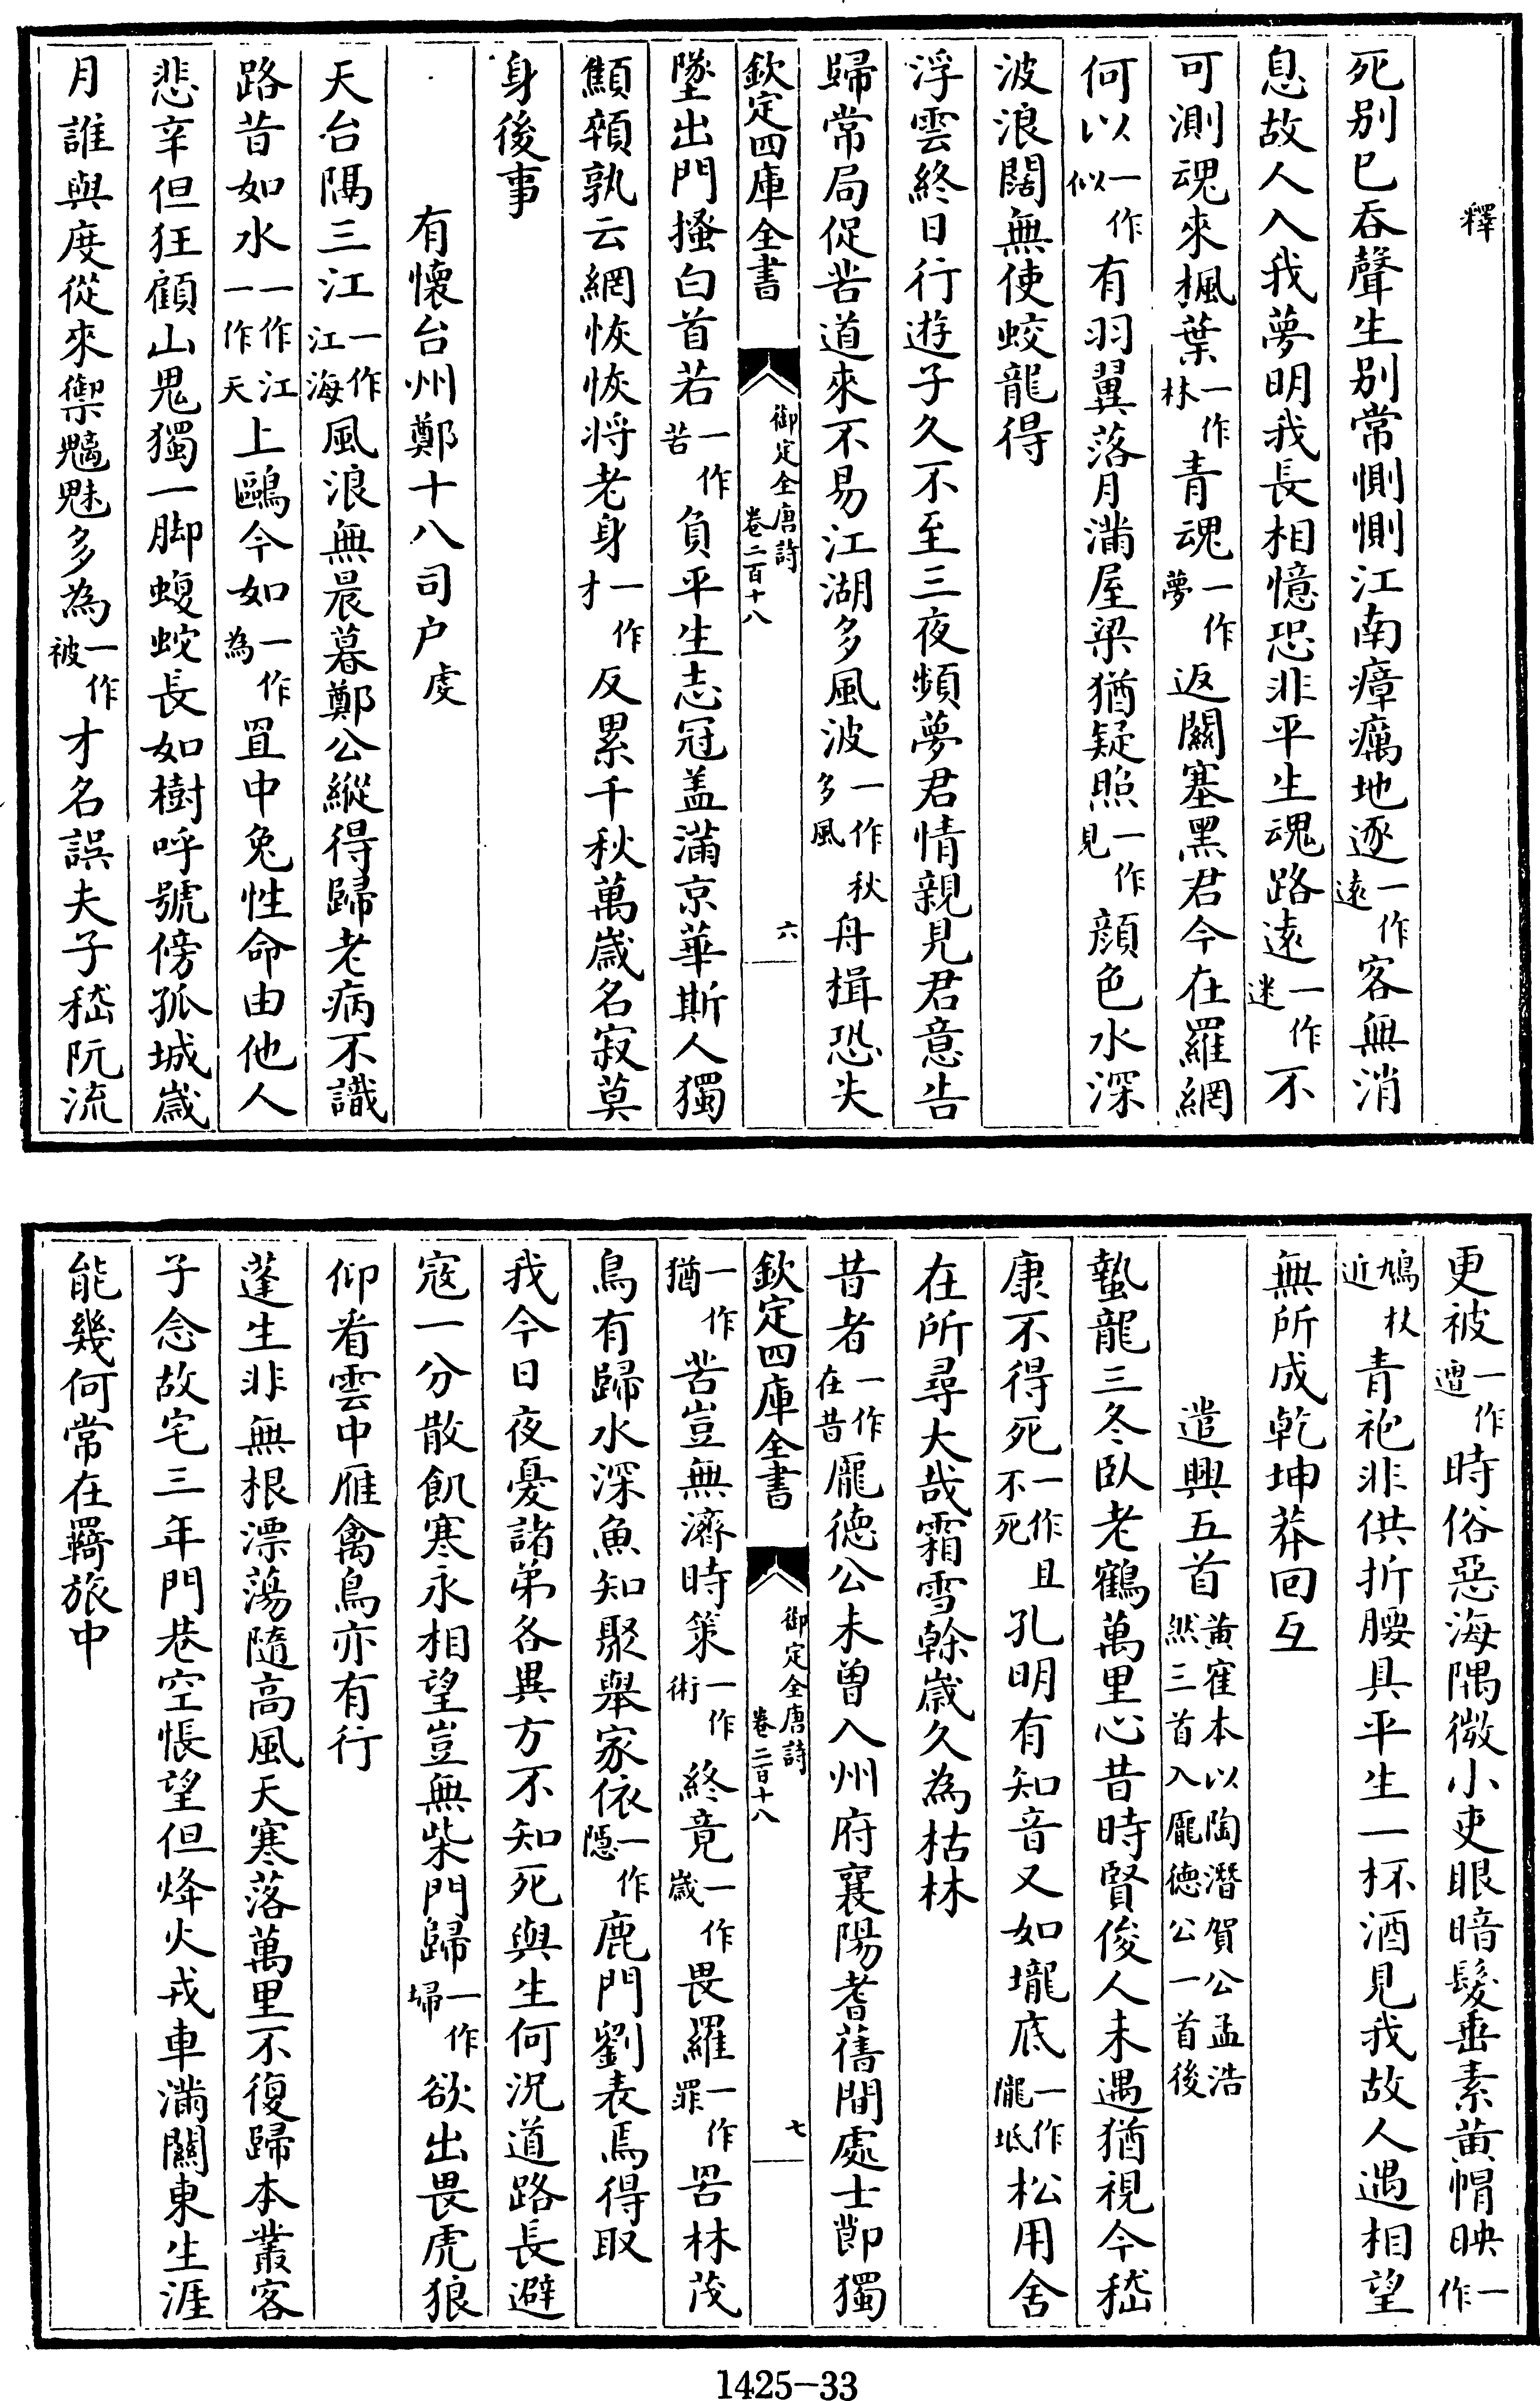 釋
死别已吞聲生别常惻惻江南瘴癘地逐一作遠客無消
息故人入我夢明我長相憶恐非平生魂路遠一作迷不
可測魂來楓葉一作林青魂一作夢返關塞黑君今在羅網
何以一作似有羽翼落月滿屋梁猶疑照一作見顔色水深
波浪闊無使蛟龍得
浮雲終日行遊子久不至三夜頻夢君情親見君意告
歸常局促苦道來不易江湖多風波一作秋多風舟楫恐失
欽定四庫全書 御定全唐詩卷二百十八 六
墜出門搔白首若一作苦負平生志冠盖滿京華斯人獨
顦顇孰云網恢恢将老身一作才反累千秋萬歲名寂寞
身後事
有懐台州鄭十八司户虔
天台隔三江一作江海風浪無晨暮鄭公縱得歸老病不識
路昔如水一作江一作天上鷗今如一作為罝中兔性命由他人
悲辛但狂顧山鬼獨一脚蝮蛇長如樹呼號傍孤城歲
月誰與度從來禦魑魅多為一作被才名誤夫子嵇阮流
更被一作遭時俗惡海隅微小吏眼暗髮垂素黄帽映一作
近鳩杖青袍非供折腰具平生一杯酒見我故人遇相望
無所成乾坤莽回互
遣興五首黄寉本以陶潛賀公孟浩然三首入龎德公一首後
蟄龍三冬臥老鶴萬里心昔時賢俊人未遇猶視今嵇
康不得死一作且不死孔明有知音又如壠底一作隴坻松用舍
在所尋大哉霜雪幹歲久為枯林
昔者一作在昔龎德公未曾入州府襄陽耆舊間處士節獨
欽定四庫全書 御定全唐詩卷二百十八 七
一作猶苦豈無濟時策一作術終竟一作歲畏羅一作罪罟林茂
鳥有歸水深魚知聚舉家依一作隱鹿門劉表焉得取
我今日夜憂諸弟各異方不知死與生何況道路長避
寇一分散飢寒永相望豈無柴門歸一作掃欲出畏虎狼
仰看雲中雁禽鳥亦有行
蓬生非無根漂蕩隨高風天寒落萬里不復歸本叢客
子念故宅三年門巷空悵望但烽火戎車滿關東生涯
能幾何常在羇旅中
1425-33